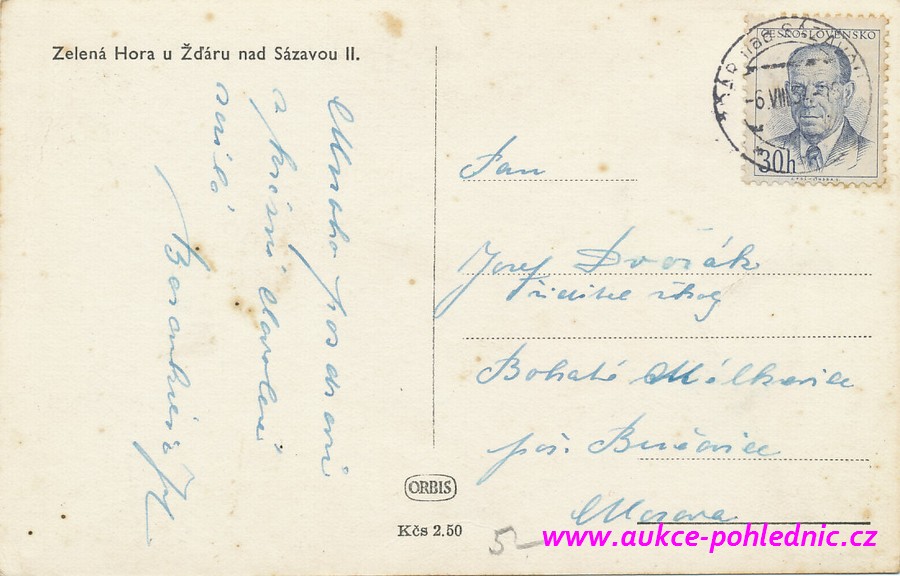 Zelená Hora u Žďáru nad Sázavou II.
Mnoho pozdravů
z krásné dovolené
posílá
ČESKOSLOVENSKO
-6.VIII.5
30h
Pan
Josef Dvořák
ředitel školy
Bohaté Málkovice
poš. Bučovice
Morava
ORBIS
Kčs 2.50
5-
www.aukce-pohlednic.cz